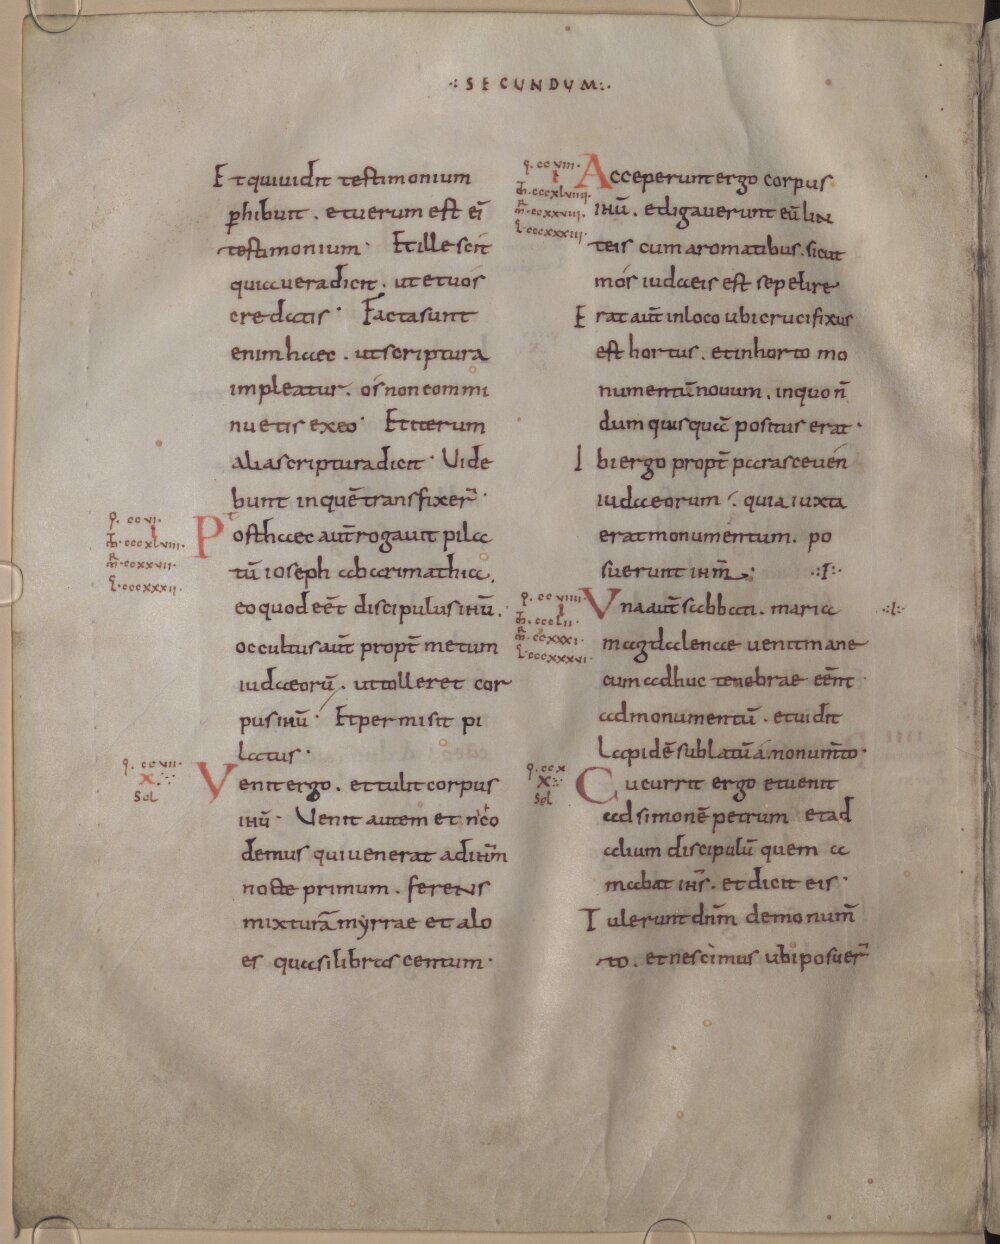 ·: SECUNDUM :·
Et qui uidit testimonium
phibuit . et uerum est ei̅
testimonium · Et ille scit
quia uera dicit . ut et uos
credatis · Facta sunt
enim haec . ut scriptura
impleatur . os non commi
nuetis ex eo · Et iterum
alia scriptura dicit · Uide
bunt in que̅ transfixer̅ ·
q. ccvi.
I
ccxlviii.
ccxxvii.
l. cccxxxii.
Post haec aut̅ rogauit pila
tu̅ ioseph ab arimathia,
eo quod ee̅t discipulus ihu̅ .
occultus aut̅ propt̅ metum
iudaeoru̅ . ut tolleret cor
pus ihu̅ · Et permisit pi
latus ·
q. ccvii.
X
Sol
Venit ergo . et tulit corpus
ihu̅ · Uenit autem et nico
demus qui uenerat ad ihm̅
nocte primum . ferens
mixtura̅ myrrae et alo
es quasi libras centum ·
q. ccviii.
I
cccxlviiii.
ccxxviii.
l. cccxxxiii.
Acceperunt ergo corpus
ihu̅ . et ligauerunt eu̅ lin
teis cum aromatibus . sicut
mos iudaeis est sepelire
Erat aut̅ in loco ubi crucifixus
est hortus . et in horto mo
numentu̅ nouum . in quo n̅
dum quisqua̅ positus erat ·
Ibi ergo propt̅ parasceuen
iudaeorum . quia iuxta
erat monumentum . po
suerunt ihm̅ ·:I:·
q. ccviiii.
I
ccclii.
ccxxxi.
l. cccxxxvi.
Una aut̅ sabbati . maria ·:I:·
magdalenae uenit mane
cum adhuc tenebrae ee̅nt
ad monumentu̅ . et uidit
lapide̅ sublatu̅ a monum̅to ·
q. ccx
X
Sol
Cucurrit ergo et uenit
ad simone̅ petrum et ad
alium discipulu̅ quem a
mabat ihs̅ . et dicit eis ·
Tulerunt dnm̅ de monum̅
to . et nescimus ubi posuer̅